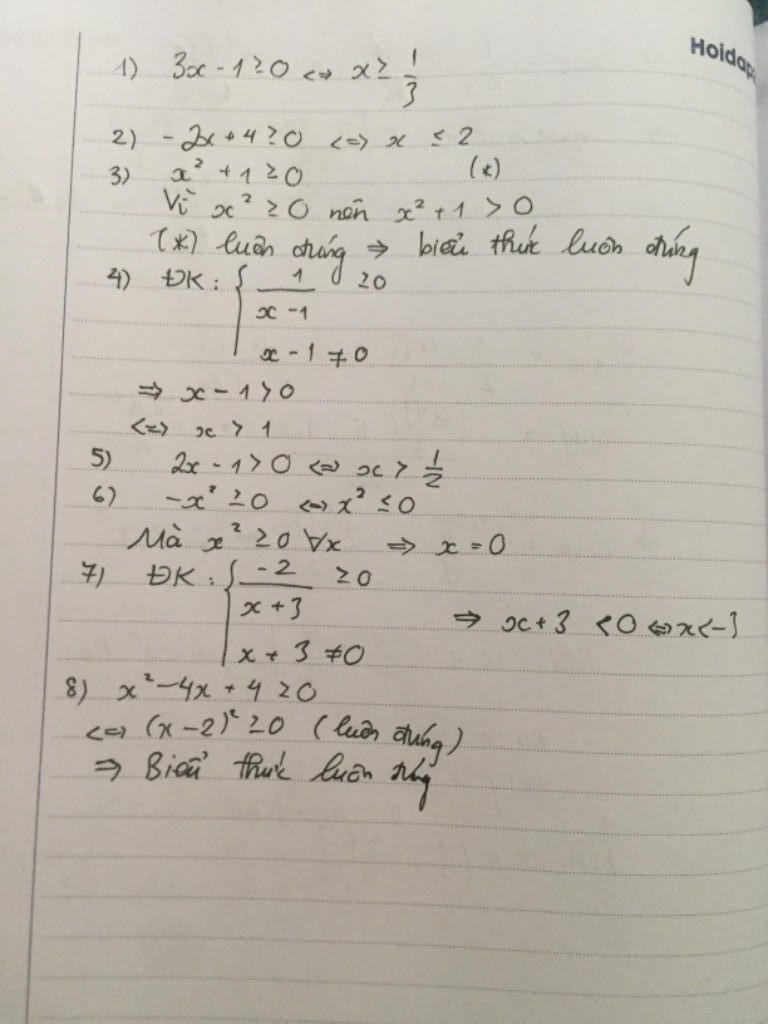 Hoidap
1) 3x - 1 ≥ 0 <=> x ≥ 1/3
2) - 2x + 4 ≥ 0 <=> x ≤ 2
3) x² + 1 ≥ 0 (*)
Vì x² ≥ 0 nên x² + 1 > 0
(*) luôn đúng => biểu thức luôn đúng
4) ĐK : { 1/(x - 1) ≥ 0
x - 1 ≠ 0
=> x - 1 > 0
<=> x > 1
5) 2x - 1 > 0 <=> x > 1/2
6) -x² ≥ 0 <=> x² ≤ 0
Mà x² ≥ 0 ∀x => x = 0
7) ĐK : { -2/(x + 3) ≥ 0
x + 3 ≠ 0 => x + 3 < 0 <=> x < -3
8) x² - 4x + 4 ≥ 0
<=> (x - 2)² ≥ 0 (luôn đúng)
=> Biểu thức luôn đúng